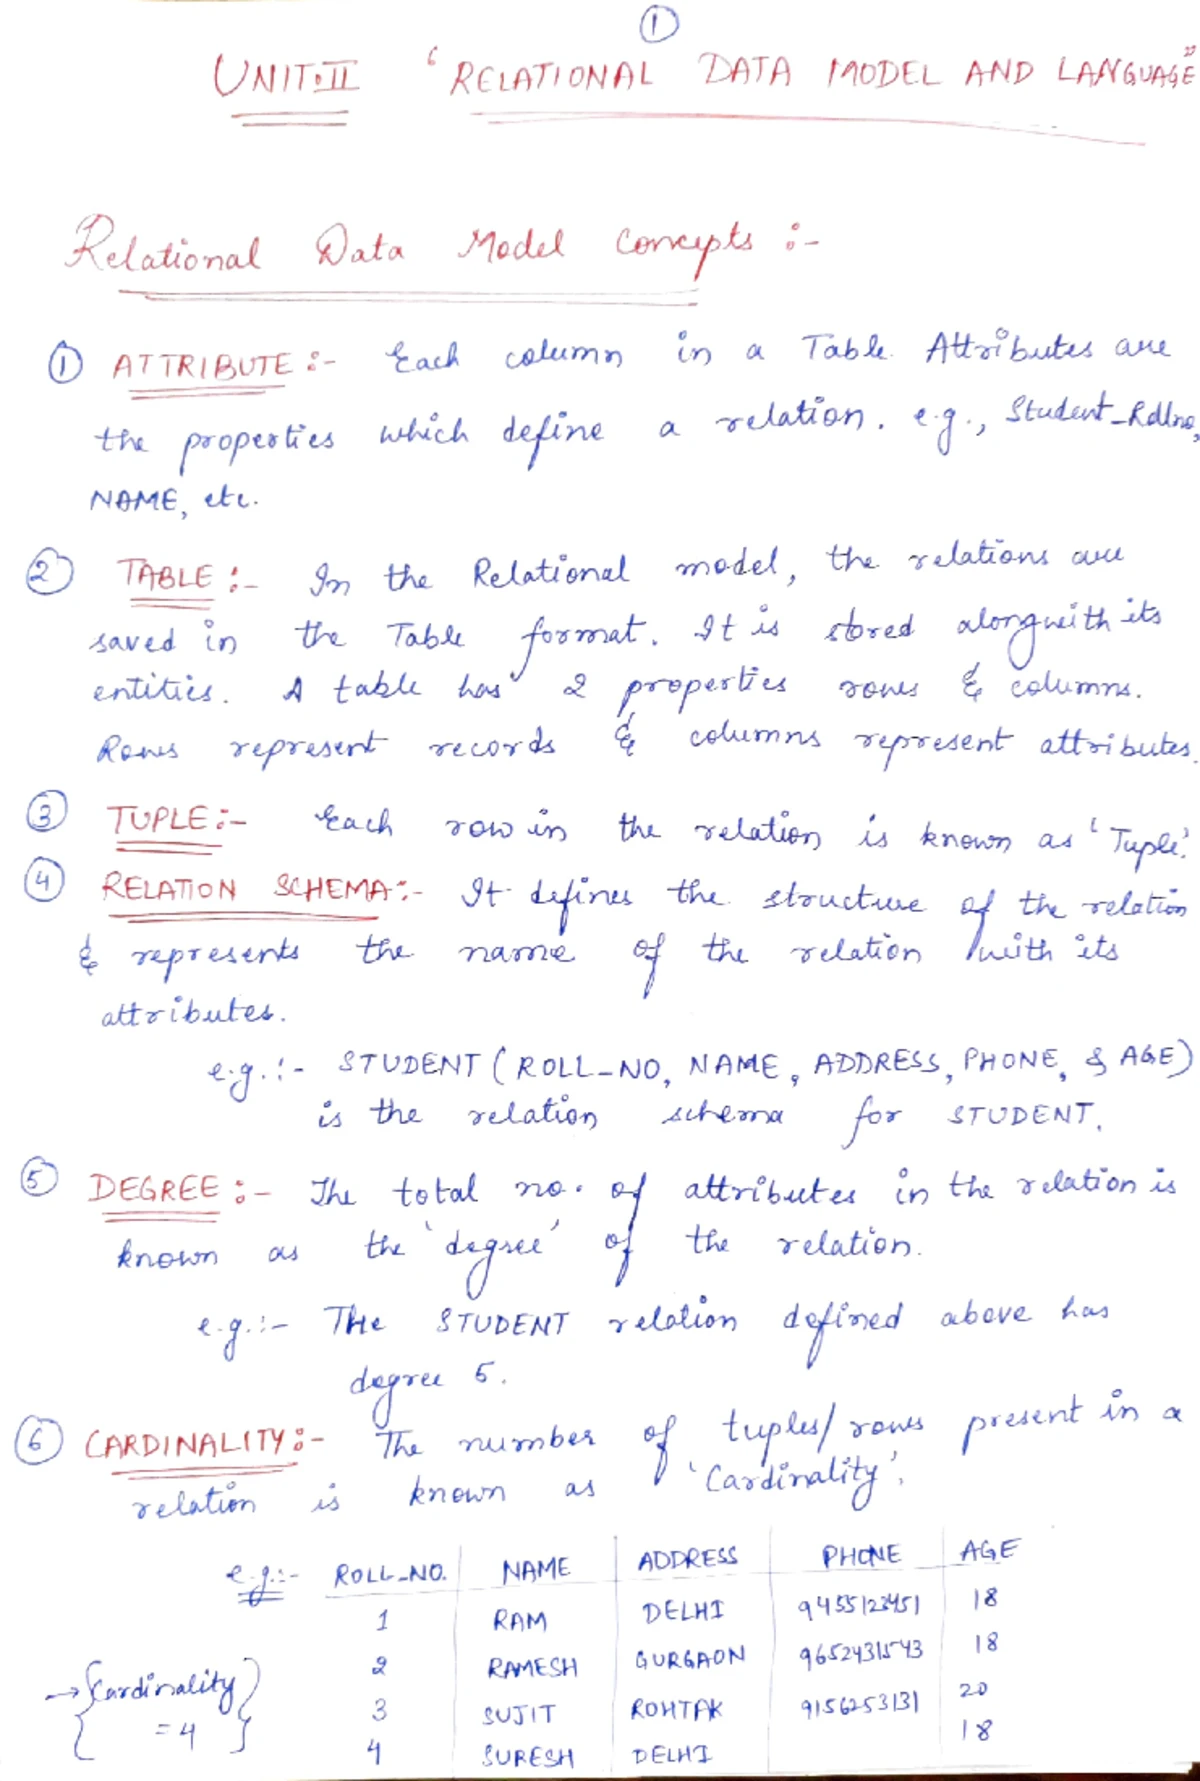 ①
UNIT:II "RELATIONAL DATA MODEL AND LANGUAGE"
Relational Data Model Concepts :-
① ATTRIBUTE :- Each column in a Table. Attributes are
the properties which define a relation. e.g., Student_Rollno,
NAME, etc.
② TABLE :- In the Relational model, the relations are
saved in the Table format. It is stored alongwith its
entities. A table has 2 properties rows & columns.
Rows represent records & columns represent attributes.
③ TUPLE :- Each row in the relation is known as 'Tuple'.
④ RELATION SCHEMA :- It defines the structure of the relation
& represents the name of the relation with its
attributes.
e.g. :- STUDENT (ROLL_NO, NAME, ADDRESS, PHONE, & AGE)
is the relation schema for STUDENT.
⑤ DEGREE :- The total no. of attributes in the relation is
known as the 'degree' of the relation.
e.g. :- THe STUDENT relation defined above has
degree 5.
⑥ CARDINALITY :- The number of tuples/rows present in a
relation is known as 'Cardinality'.
e.g. :- ROLL_NO. NAME ADDRESS PHONE AGE
1 RAM DELHI 9455123451 18
2 RAMESH GURGAON 9652431543 18
3 SUJIT ROHTAK 9156253131 20
4 SURESH DELHI 18
→ {Cardinality
= 4}